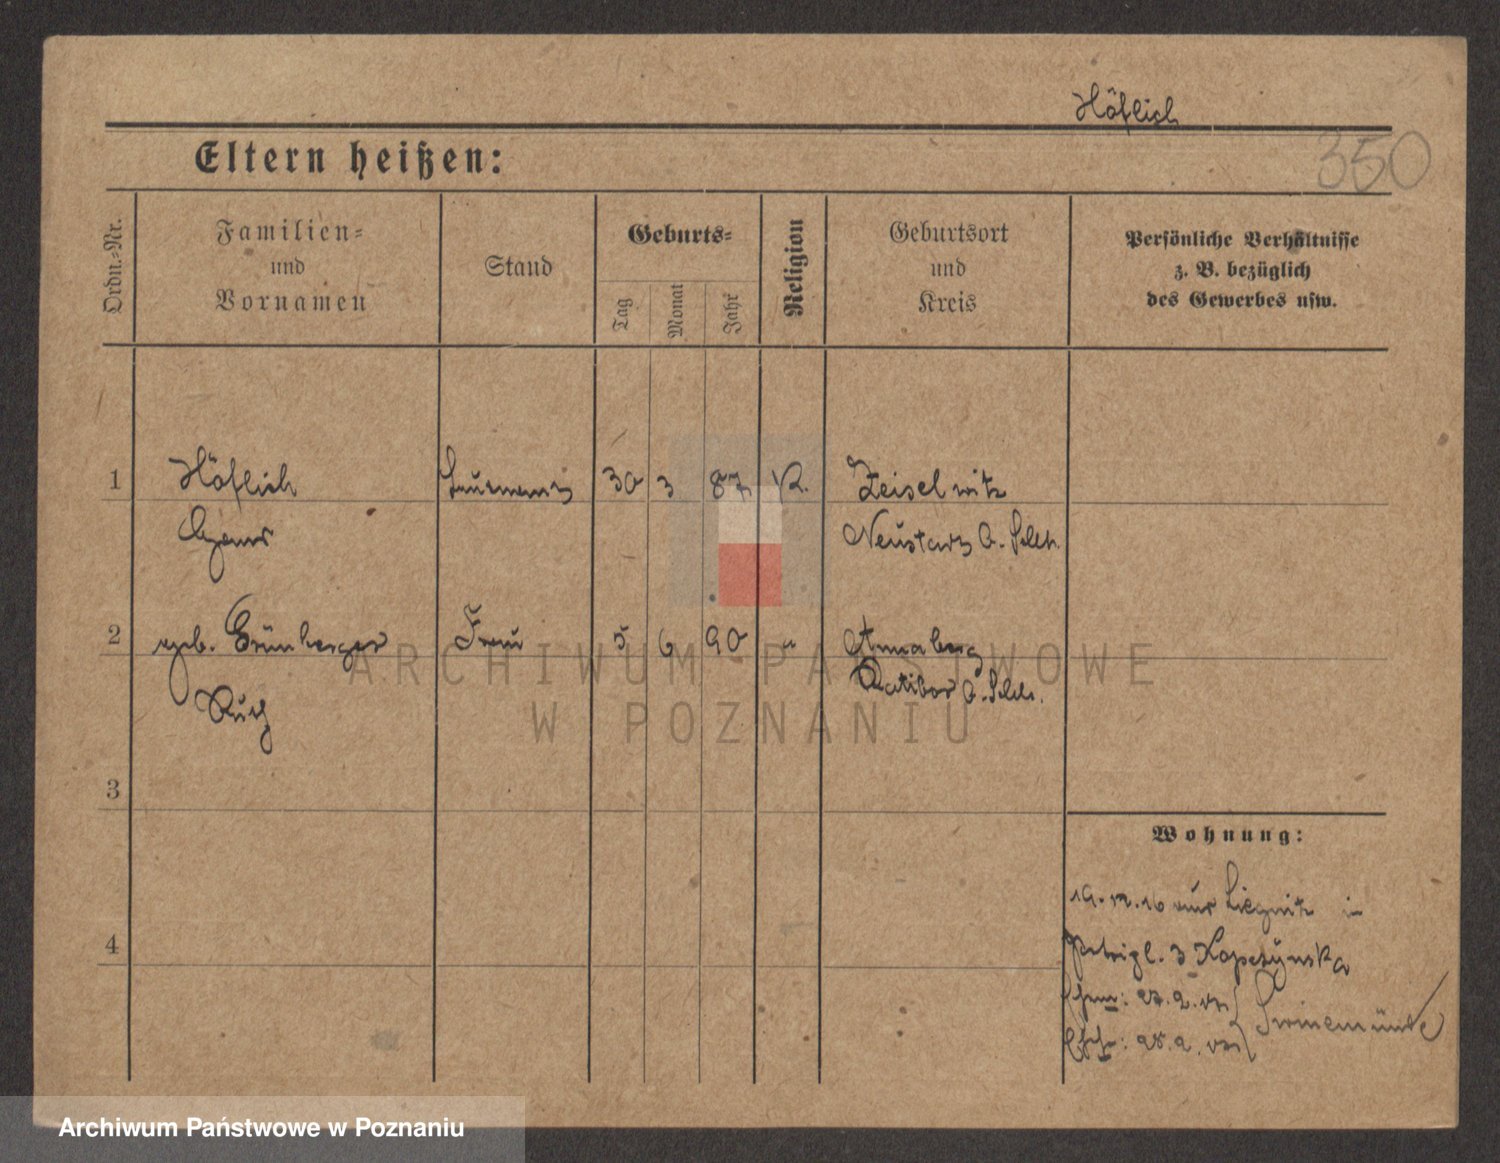 Höflich
350
Eltern heißen:
Ordn.-Nr.
Familien-
und
Vornamen
Stand
Geburts-
Tag
Monat
Jahr
Religion
Geburtsort
und
Kreis
Persönliche Verhältnisse
z. B. bezüglich
des Gewerbes usw.
1
Höflich
30
3
87
K.
Zeiselwitz
Neustadt O. Schl.
2
geb. Grünberger
Frau
5
6
90
"
Annaberg
Ratibor O. Schl.
3
Wohnung:
19.12.16 aus Liegnitz in
3 Kapczynska
4
Swinemünde
ARCHIWUM PAŃSTWOWE
W POZNANIU
Archiwum Państwowe w Poznaniu